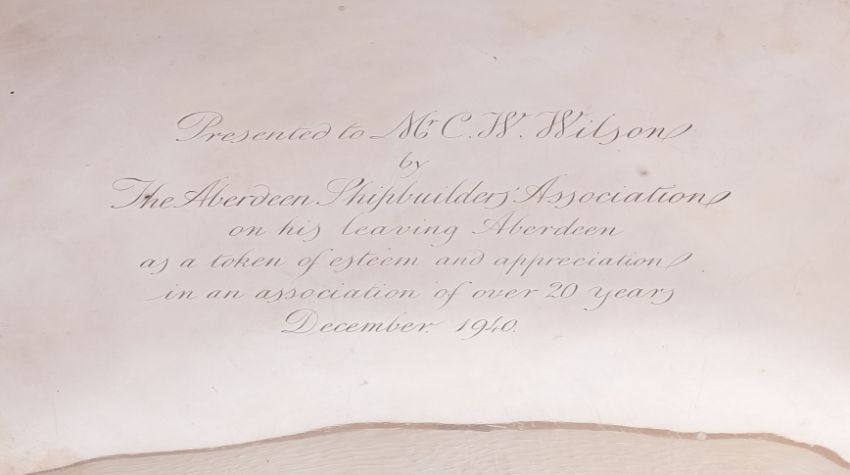 Presented to Mr C. W. Wilson
by
The Aberdeen Shipbuilders' Association
on his leaving Aberdeen
as a token of esteem and appreciation
in an association of over 20 years
December. 1940.